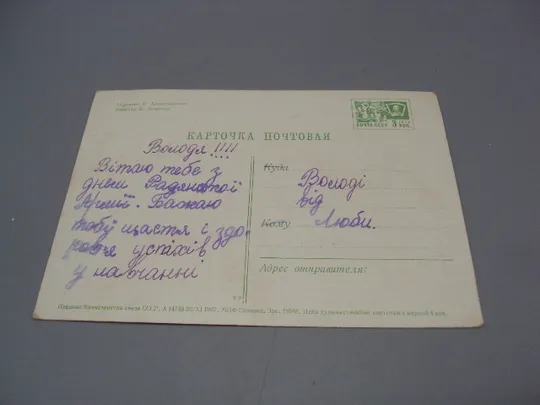 КАРТОЧКА ПОЧТОВАЯ
ПОЧТА СССР 3 КОП.
Володя!!!!
Вітаю тебе з
днем Радянської
Армії. Бажаю
тобі щастя і здо-
ров'я успіхів
у навчанні
Куда
Володі
від
Кому
Люби.
Адрес отправителя:
Издание Министерства связи СССР.